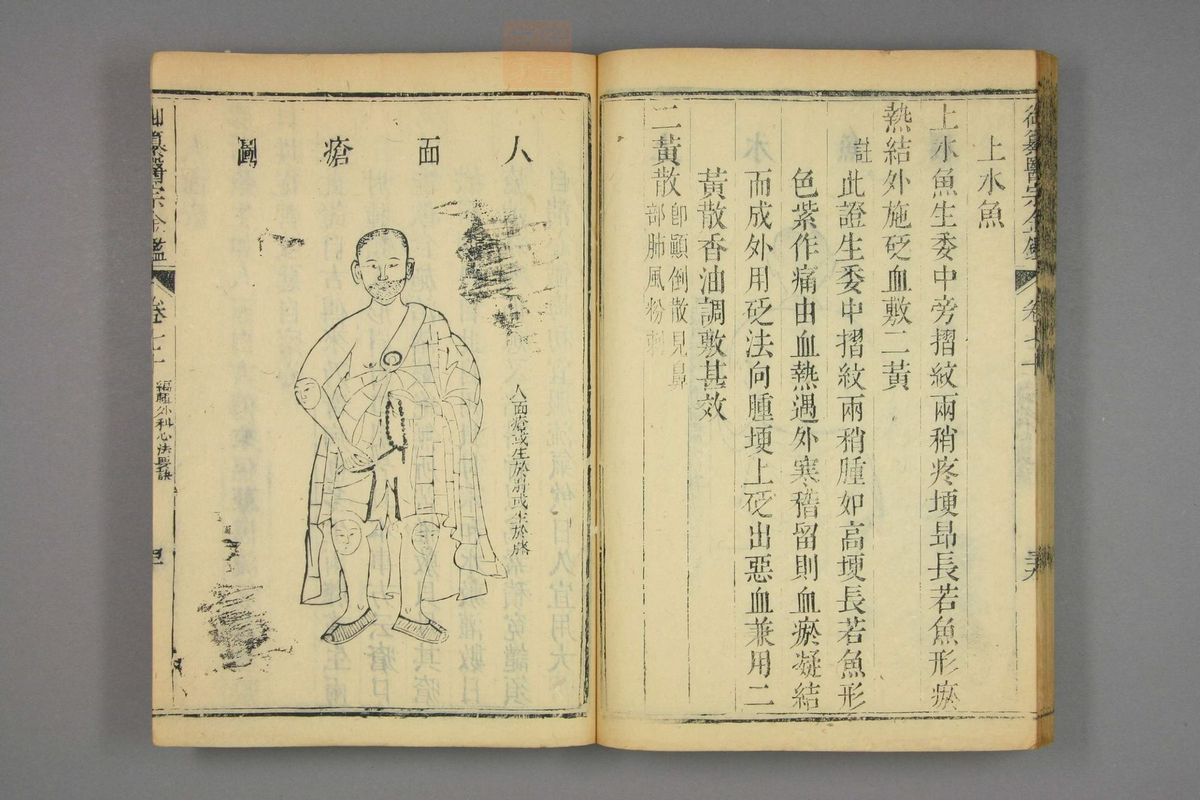 上水魚
上水魚生委中旁摺紋兩稍疼埂昂長若魚形瘀
熱結外施砭血敷二黃
註此證生委中摺紋兩稍腫如高埂長若魚形
色紫作痛由血熱遇外寒稽留則血瘀凝結
而成外用砭法向腫埂上砭出惡血兼用二
黃散香油調敷甚效
二黃散卽顚倒散見鼻
部肺風粉刺
人面瘡圖
人面瘡或生於肘或生於膝
御纂醫宗金鑑
卷七十一
編輯外科心法要訣